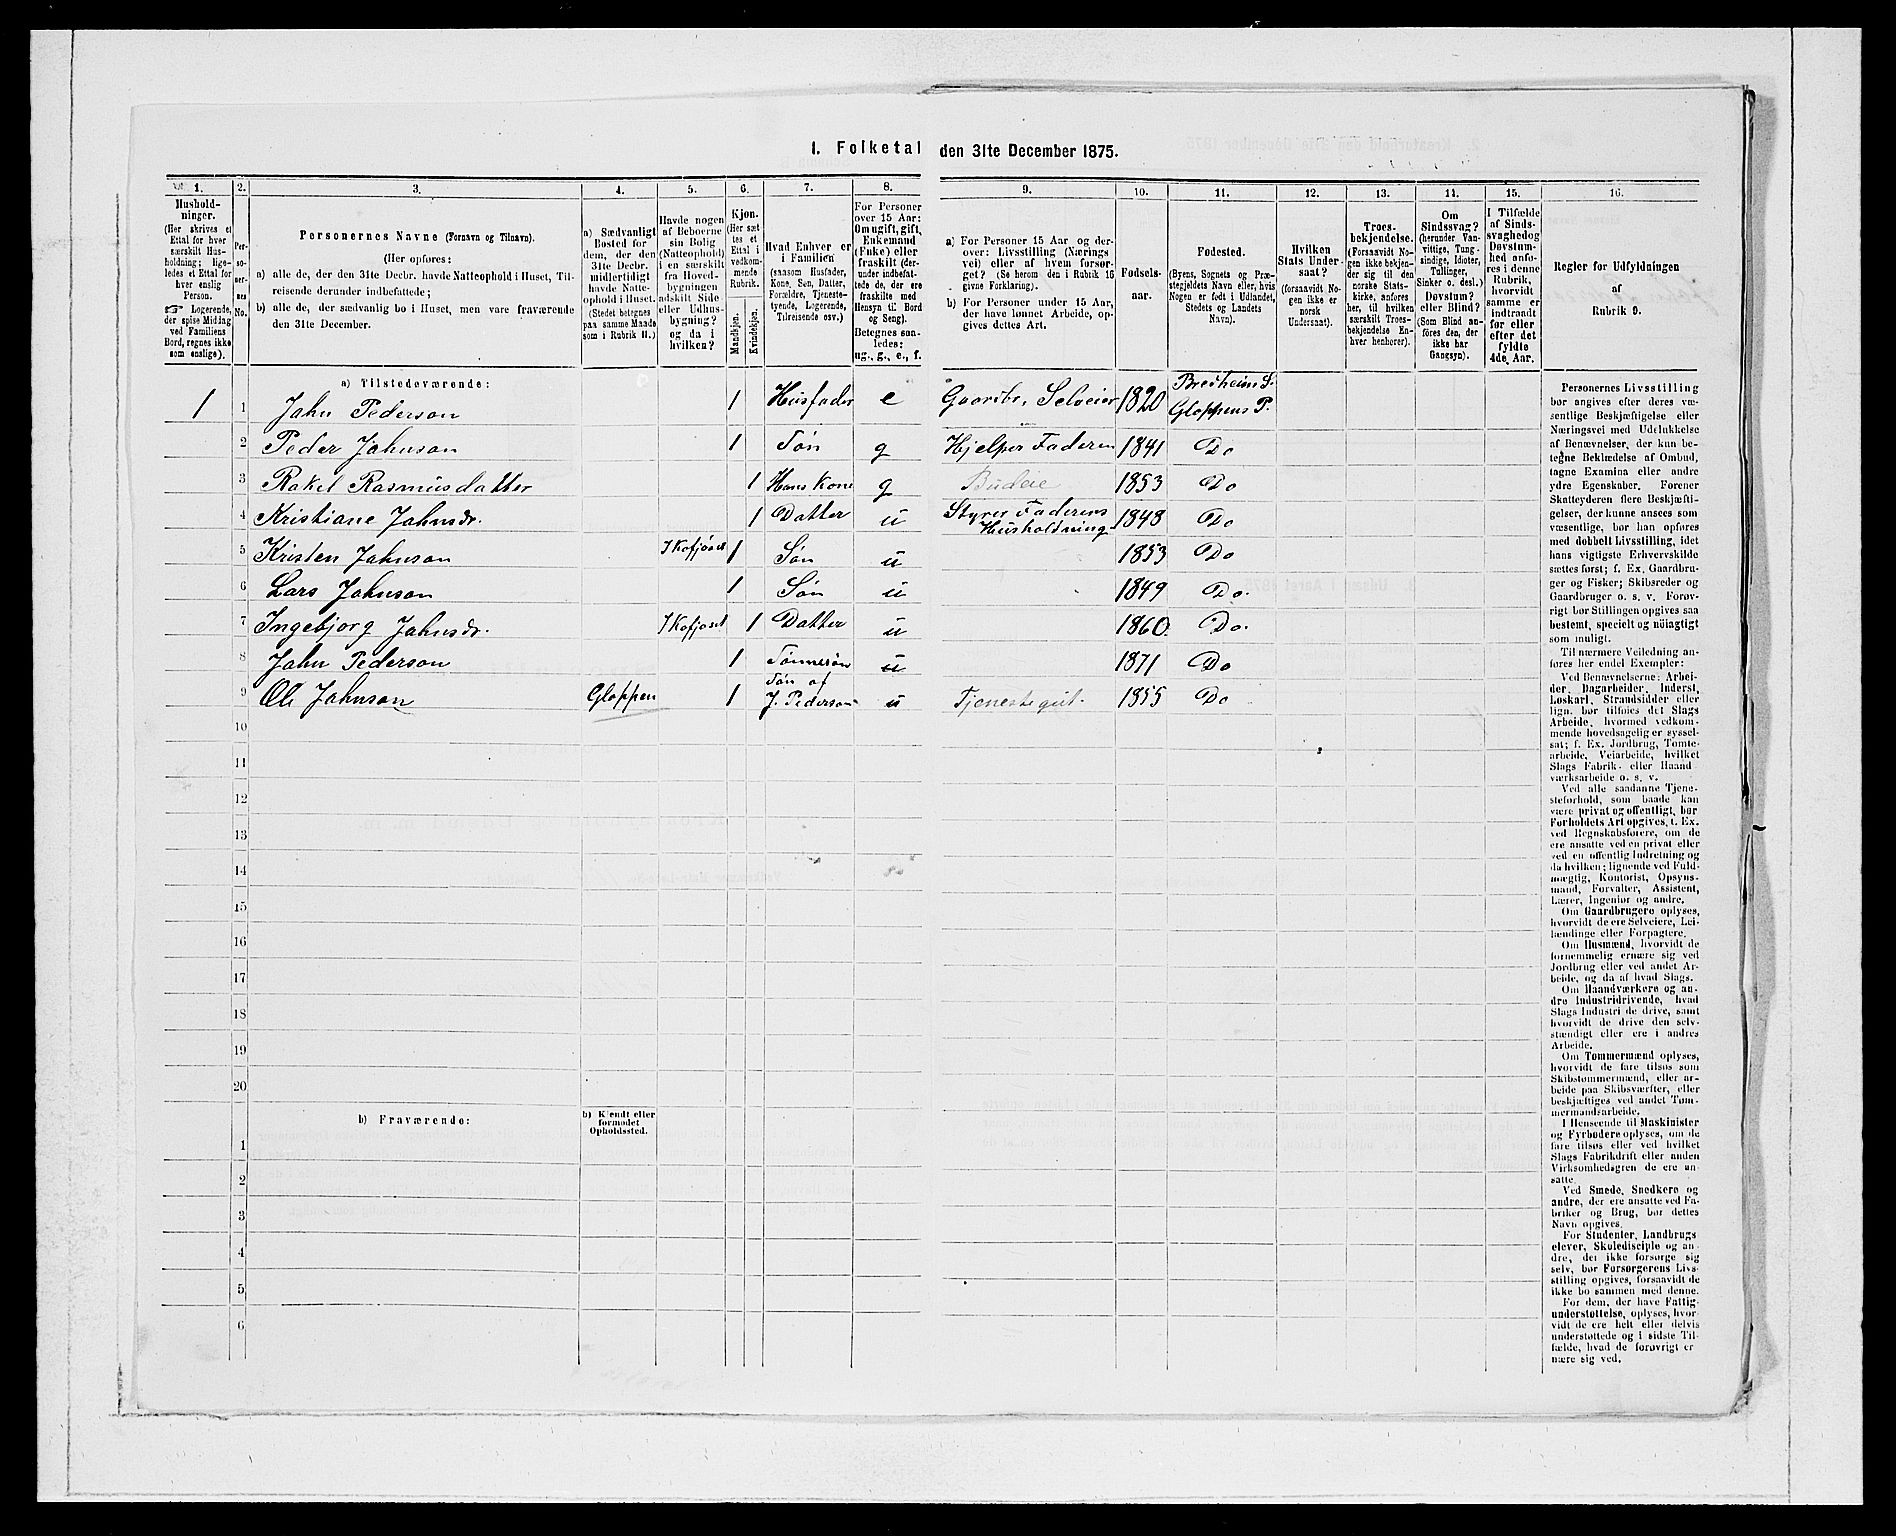 1. Folketal den 31te December 1875.
1. 2. 3. 4. 5. 6. 7. 8. 9. 10. 11. 12. 13. 14. 15. 16.
Hushold-
ninger.
(Her skrives et
Ettal for hver
særskilt Hus-
holdning; lige-
ledes et Ettal for
hver enslig
Person.
☞ Logerende,
der spise Middag
ved Familiens
Bord, regnes ikke
som enslige).
Per-
so-
ner-
nes
No.
Personernes Navne (Fornavn og Tilnavn).
(Her opføres:
a) alle de, der den 31te Decbr. havde Natteophold i Huset, Til-
reisende derunder indbefattede;
b) alle de, der sædvanlig bo i Huset, men vare fraværende
den 31te December.
a) Sædvanligt
Bosted for
dem, der den
31te Decbr.
midlertidigt
havde Natte-
ophold i Huset.
(Stedet betegnes
paa samme Maade
som i Rubrik 11.)
Havde nogen
af Beboerne
sin Bolig
(Natteophold)
i en særskilt
fra Hoved-
bygningen
adskilt Side-
eller Udhus-
bygning?
og da i
hvilken?
Kjøn.
(Her sæt-
tes et
Ettal i
vedkom-
mende
Rubrik.
Mandkjøn.
Kvindekjøn.
Hvad Enhver er
i Familien
(saasom Husfader,
Kone, Søn, Datter,
Forældre, Tjeneste-
tyende, Logerende,
Tilreisende osv.)
For Personer
over 15 Aar:
Om ugift, gift,
Enkemand
(Enke) eller
fraskilt (der-
under indbefat-
tede de, der ere
fraskilte med
Hensyn til Bord
og Seng).
Betegnes saa-
ledes:
ug., g., e., f.
a) For Personer 15 Aar og der-
over: Livsstilling (Nærings-
vei) eller af hvem forsør-
get? (Se herom den i Rubrik 16
givne Forklaring).
b) For Personer under 15 Aar,
der have lønnet Arbeide, op-
gives dettes Art.
Fødsels-
aar.
Fødested.
(Byens, Sognets og Præ-
stegjeldets Navn eller, hvis
Nogen er født i Udlandet,
Stedets og Landets
Navn).
Hvilken
Stats Under-
saat?
(forsaavidt No-
gen ikke er
norsk
Undersaat).
Troes-
bekjendelse.
(Forsaavidt No-
gen ikke bekjen-
der sig til den
norske Stats-
kirke, anføres
her, til hvilken
særskilt Troes-
bekjendelse En-
hver henhører).
Om
Sindssvag?
(herunder Van-
vittige, Tung-
sindige, Idioter,
Tullinger,
Sinker o. desl.)
Døvstum?
eller Blind?
(Som Blind an-
føres den, der
ikke har
Gangsyn).
I Tilfælde
af Sinds-
svaghed og
Døvstum-
hed anfø-
res i denne
Rubrik,
hvorvidt
samme er
indtraadt
før eller
efter det
fyldte
4de Aar.
Regler for Udfyldningen
af
Rubrik 9.
a) Tilstedeværende:
1 1 Jahn Pederson 1 Husfader e Gaardbr. Selveier 1820 Bredheim S. Gloppens P.
2 Peder Jahnson 1 Søn g Hjelper Faderen 1841 Do
3 Rakel Rasmusdatter 1 Hans Kone g Budeie 1853 Do
4 Kristiane Jahnsdr. 1 Datter u Styrer Faderens Husholdning 1848 Do
5 Kristen Jahnson I Kofjøset 1 Søn u 1853 Do
6 Lars Jahnson 1 Søn u 1849 Do.
7 Ingebjorg Jahnsdr. I Kofjøset 1 Datter u 1860. Do.
8 Jahn Pederson 1 Sønnesøn u 1871 Do
9 Ole Jahnson Gloppen 1 Søn af J. Pederson u Tjenestegut. 1855 Do
10
11
12
13
14
15
16
17
18
19
20
b) Fraværende:
b) Kjendt eller
formodet
Opholdssted.
1
2
3
4
5
6
Personernes Livsstilling
bør angives efter deres væ-
sentlige Beskjæftigelse eller
Næringsvei med Udelukkelse
af Benævnelser, der kun be-
tegne Beklædelse af Ombud,
tagne Examina eller andre
ydre Egenskaber. Forener
Skatteyderen flere Beskjæfti-
gelser, der kunne ansees som
væsentlige, bør han opføres
med dobbelt Livsstilling, idet
hans vigtigste Erhvervskilde
sættes først; f. Ex. Gaardbru-
ger og Fisker; Skibsreder og
Gaardbruger o. s. v. Forøv-
rigt bør Stillingen opgives saa
bestemt, specielt og nöiagtigt
som muligt.
Til nærmere Veiledning an-
føres her endel Exempler:
Ved Benævnelserne: Arbei-
der, Dagarbeider, Inderst,
Løskarl, Strandsidder eller
lign. bør tilføies det Slags
Arbeide, hvormed vedkom-
mende hovedsagelig er syssel-
sat; f. Ex. Jordbrug, Tomte-
arbeide, Veiarbeide, hvilket
Slags Fabrik- eller Haand-
værksarbeide o. s. v.
Ved alle saadanne Tjene-
steforhold, som baade kan
være privat og offentligt, bør
Forholdets Art opgives, f. Ex.
ved Regnskabsførere, om de
ere ansatte ved en privat eller
ved en offentlig Indretning og
da hvilken; lignende ved Fuld-
mægtig, Kontorist, Opsyns-
mand, Forvalter, Assistent,
Lærer, Ingeniør og andre.
Om Gaardbrugere oplyses,
hvorvidt de ere Selveiere, Lei-
lændinge eller Forpagtere.
Om Husmænd, hvorvidt de
fornemmelig ernære sig ved
Jordbrug eller ved andet Ar-
beide, og da af hvad Slags.
Om Haandværkere og an-
dre Industridrivende, hvad
Slags Industri de drive, samt
hvorvidt de drive den selv-
stændigt eller ere i andres
Arbeide.
Om Tømmermænd oplyses,
hvorvidt de fare tilsøs som
Skibstømmermænd, eller ar-
beide paa Skibsværfter, eller
beskjæftiges ved andet Tøm-
mermandsarbeide.
I Henseende til Maskinister
og Fyrbødere oplyses, om de
fare tilsøs eller ved hvilket
Slags Fabrikdrift eller anden
Virksomhedsgren de ere an-
satte.
Ved Smede, Snedkere og
andre, der ere ansatte ved Fa-
briker og Brug, bør dettes
Navn opgives.
For Studenter, Landbrugs-
elever, Skoledisciple og an-
dre, der ikke forsørge sig
selv, bør Forsørgerens Livs-
stilling opgives, forsaavidt de
ikke bo sammen med denne.
For dem, der have Fattig-
understøttelse, oplyses, hvor-
vidt de ere helt eller delvis
understøttede og i sidste Til-
fælde, hvad de forøvrigt er-
nære sig ved.